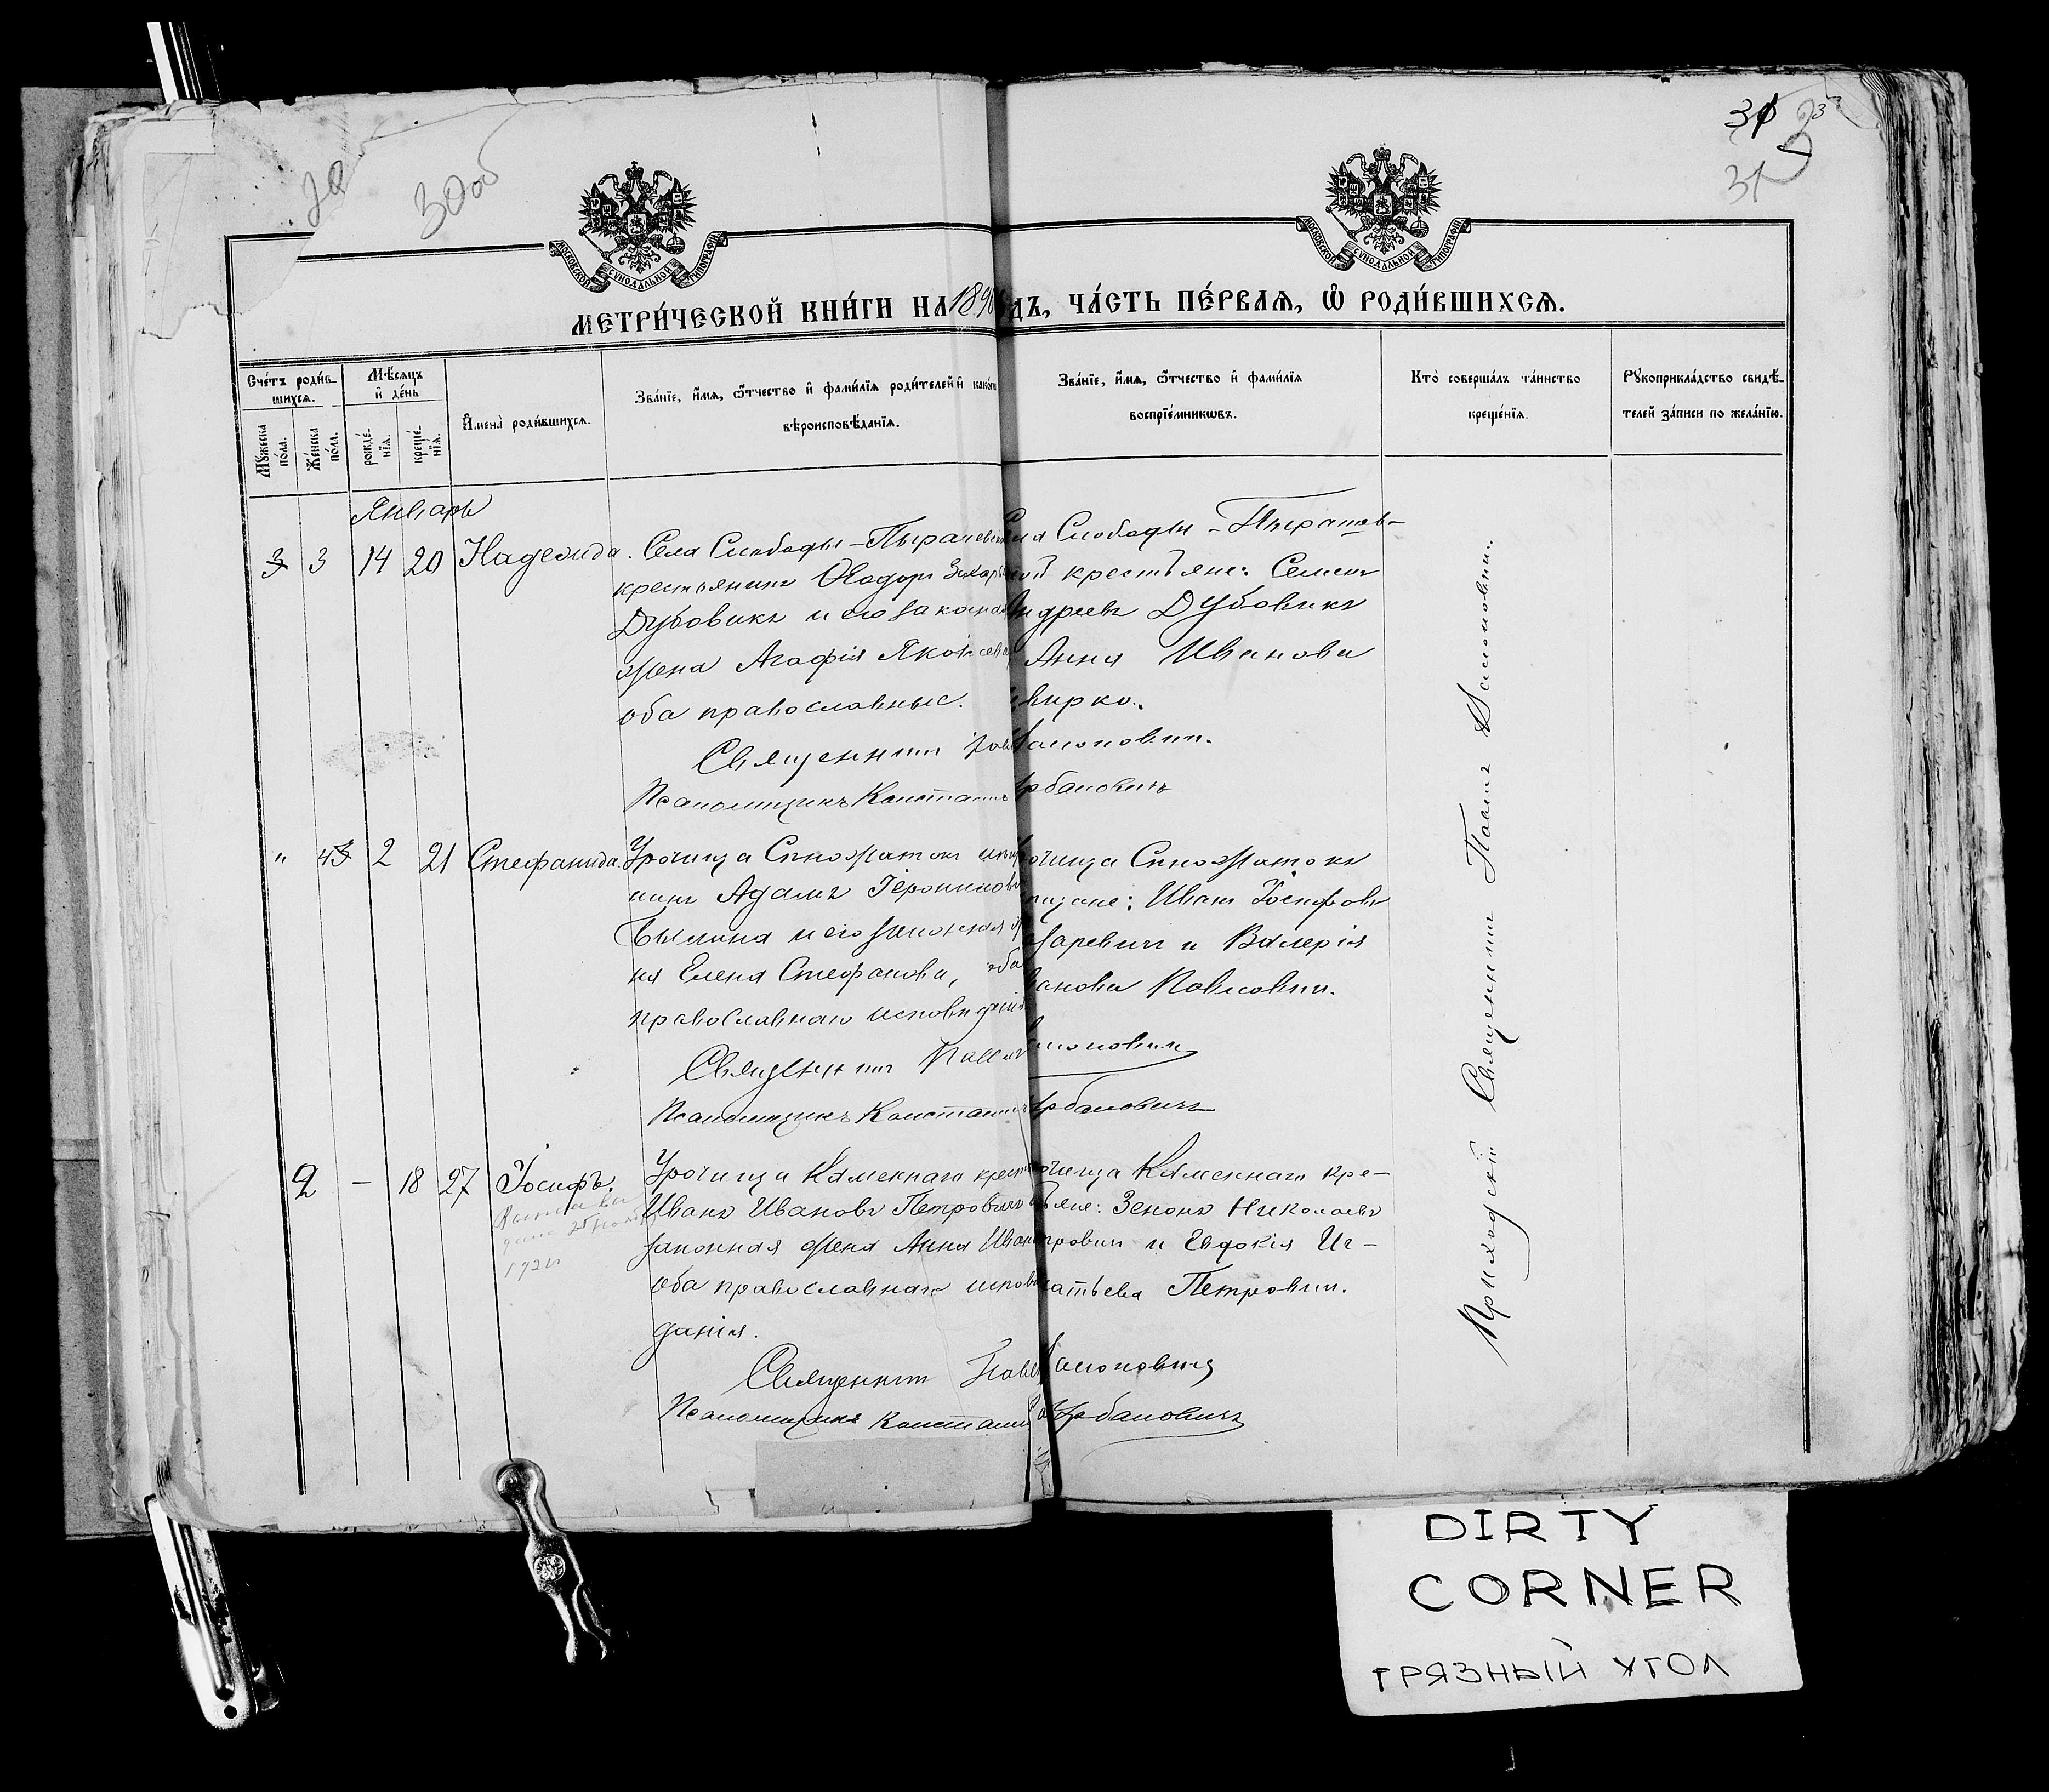 30
300
31 23
31
МОСКОВСКОЙ СѴНОДАЛЬНОЙ ТИПОГРАФІИ
МОСКОВСКОЙ СѴНОДАЛЬНОЙ ТИПОГРАФІИ
МЕТРИ́ЧЕСКОЙ КНИ́ГИ НА 1890 ГОДЪ, ЧА́СТЬ ПЕ́РВАѦ, Ѡ҆ РОДИ́ВШИХСѦ.
Сче́тъ роди́в-
шихсѧ.
Му́жеска по́ла.
Же́нска по́ла.
Мѣ́сѧцъ и҆ де́нь
рожде́-нїѧ.
креще́-нїѧ.
И҆мена̀ роди́вшихсѧ.
Зва́нїе, и҆́мѧ, ѻ҆́тчество и҆ фами́лїѧ роди́телей и҆ како́гѡ
вѣроисповѣ́данїѧ.
Зва́нїе, и҆́мѧ, ѻ҆́тчество и҆ фами́лїѧ
воспрїе́мникѡвъ.
Кто̀ соверша́лъ та́инство
креще́нїѧ.
Рꙋкоприкла́дство свидѣ́-
телей за́писи по жела́нїю.
Январь
3 3 14 20 Надежда.
Села Слободы-Пырашев
крестьянинъ Ѳеодоръ Захар
Дубовикъ и его закон
жена Агафія Яковлева
оба православные.
Священникъ Павелъ
Псаломщикъ Констант
Села Слободы-Пырашев-
ской крестьяне: Семенъ
Андреевъ Дубовикъ
Анна Иванова
Самойловичъ.
Урбановичъ
" 4 2 21 Стефанида.
Урочища Сѣножатокъ
нинъ Адамъ Іеронимовъ
Былина и его законная же
на Елена Стефанова, оба
православнаго исповѣданія
Священникъ Павелъ
Псаломщикъ Констант
Урочища Сѣножатокъ
Иванъ Іосифовъ
и Валерія
Иванова Павловичъ.
Урбановичъ
2 – 18 27 Іосифъ.
25
192
Урочища Каменнаго крест
Иванъ Ивановъ Петровичъ
законная жена Анна Иван
оба православнаго исповѣ
данія.
Священникъ Павелъ
Псаломщикъ Констант
Урочища Каменнаго кре-
стьяне: Зенонъ Николаевъ
Петровичъ и Евдокія Иг-
натьева Петровичъ.
Урбановичъ
Приходскій Священникъ Павелъ
DIRTY
CORNER
ГРЯЗНЫЙ УГОЛ